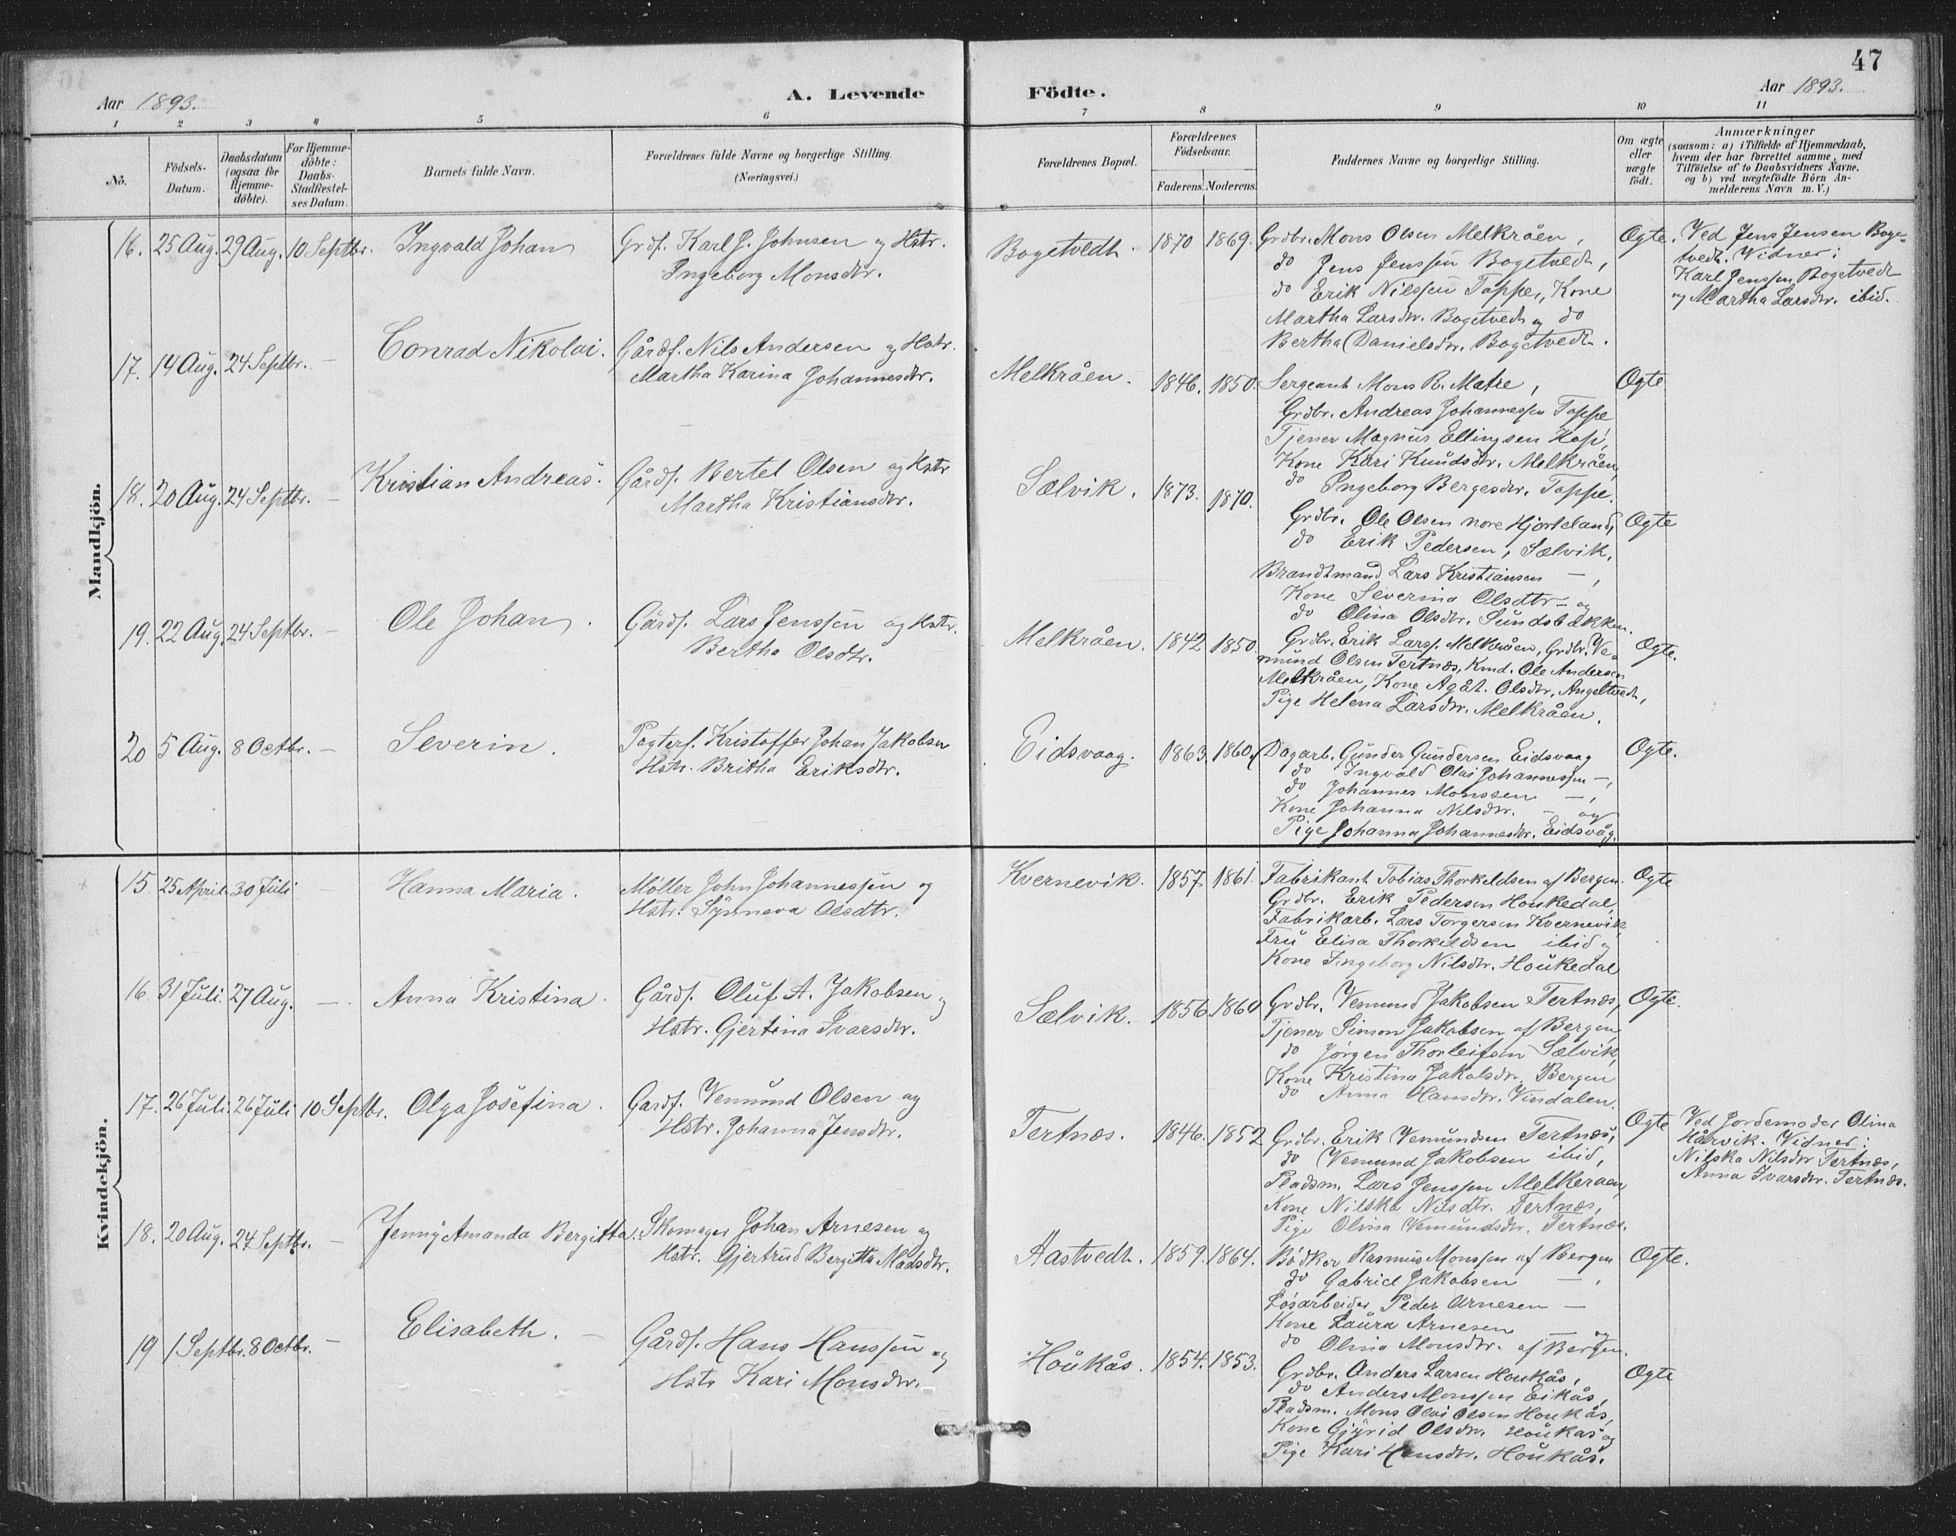 47
Aar 1893.
A. Levende Födte.
Aar 1893.
1 2 3 4 5 6 7 8 9 10 11
No.
Födsels-
Datum.
Daabsdatum
(ogsaa for
Hjemme-
döbte).
For Hjemme-
döbte:
Daabs-
Stadfæstel-
ses Datum.
Barnets fulde Navn.
Forældrenes fulde Navne og borgerlige Stilling.
(Næringsvei.)
Forældrenes Bopæl.
Forældrenes
Födselsaar.
Faderens. Moderens.
Faddernes Navne og borgerlige Stilling.
Om ægte
eller
uægte
født.
Anmærkninger
(saasom: a) i Tilfælde af Hjemmedaab,
hvem der har forrettet samme, med
Tilföielse af to Daabsvidners Navne,
og b) ved uægtefödte Börn An-
melderens Navn m. V.)
Mandkjön.
16. 25 Aug. 29 Aug. 10 Septbr. Ingvald Johan
Grdf. Karl J. Johnsen og Hstr.
Ingeborg Monsdtr.
Bogetvedt. 1870 1869.
Grdbr. Mons Olsen Melkråen,
do Jens Jenssen Bogetvedt,
do Erik Nilssen Toppe, Kone
Martha Larsdtr. Bogetvedt og do
Bertha Danielsdtr. Bogetvedt.
Ogte.
Ved Jens Jensen Boge-
tvedt. Vidner:
Karl Jenssen Bogetvedt
og Martha Larsdtr. ibid.
17. 14 Aug. 24 Septbr. — Conrad Nikolai.
Gårdf. Nils Andersen og Hstr.
Martha Karina Johannesdtr.
Melkråen. 1846. 1850.
Sergeant Mons R. Matre,
Grdbr. Andreas Johannessen Toppe
Tjener Magnus Ellingsen Hop,
Kone Kari Knudsdtr. Melkråen,
do Ingeborg Bergesdtr. Toppe.
Ogte
18. 20 Aug. 24 Septbr. — Kristian Andreas.
Gårdf. Bertel Olsen og Hstr
Martha Kristiansdtr.
Sælvik. 1873. 1870.
Grdbr. Ole Olsen nore Hjorteland,
do Erik Pedersen, Sælvik,
Brandtmand Lars Kristiansen —,
Kone Severina Olsdtr — og
do Olina Olsdtr. Sundsbakken.
Ogte
19. 22 Aug. 24 Septbr. — Ole Johan.
Gårdf. Lars Jenssen og Hstr.
Bertha Olsdtr.
Melkråen. 1842 1850.
Grdbr. Erik Larss. Melkråen, Grdbr. Ve-
mund Olsen Tertnæs, Kmd. Ole Andersen
Melkråen, Kone Agåt. Olsdtr. Angeltvedt,
Pige Helena Larsdtr. Melkråen.
Ogte.
20 5 Aug. 8 Octbr. — Severin.
Pogterf. Kristoffer Johan Jakobsen
Hstr. Britha Eriksdtr.
Eidsvaag. 1863. 1860.
Dagarb. Gunder Gundersen Eidsvaag
do Ingvald Olai Johannessen —,
do Johannes Monssen —,
Kone Johanna Nilsdtr. — og
Pige Johanna Johannesdtr. Eidsvåg.
Ogte.
Kvindekjön.
15. 25 April. 30 Juli — Hanna Maria.
Møller John Johannessen og
Hstr. Synneva Olsdtr.
Kvernevik. 1857 1861.
Fabrikant Tobias Thorkeldsen af Bergen.
Grdbr. Erik Pedersen Houkedal,
Fabrikarb. Lars Torgersen Kvernevik,
Fru Elisa Thorkeldsen ibid og
Kone Ingeborg Nilsdtr. Houkedal
Ogte
16. 31 Juli. 27 Aug. — Anna Kristina.
Gårdf. Oluf A. Jakobsen og
Hstr. Gjertina Ivarsdtr.
Sælvik. 1856. 1860
Grdbr. Vemund Jakobsen Tertnæs,
Tjener Simon Jakobsen af Bergen,
do Jørgen Thorleifsen Sælvik,
Kone Kristina Jakobsdtr. Bergen
do Anna Hansdtr. Vindalen.
Ogte.
17. 26 Juli. 26 Juli 10 Septbr. Olga Josefina.
Gardf. Vemund Olsen og
Hstr. Johanna Jensdtr.
Tertnæs. 1846. 1852
Grdbr. Erik Vemundsen Tertnæs,
do Vemund Jakobsen ibid,
Pladsm. Lars Jenssen Melkeraen,
Kone Nilska Nilsdtr. Tertnæs,
Pige Olina Vemundsdtr. Tertnæs.
Ogte
Ved Jordemoder Olina
Hårvik. Vidner:
Nilska Nilsdtr Tertnæs,
Anna Ivarsdtr. Tertnæs.
18. 20 Aug. 24 Septbr. — Jenny Amanda Bergitta.
Skomager Johan Arnesen og
Hstr. Gjertrud Bergitta Madsdtr.
Aastvedt. 1859. 1864.
Bødker Rasmus Monssen af Bergen
do Gabriel Jakobsen —,
Løsarbeider Peder Arnesen —
Kone Laura Arnesen — og
do Olina Monsdtr. af Bergen.
Ogte.
19 1 Septbr. 8 Octbr. — Elisabeth. —
Gårdf. Hans Hanssen og
Hstr Kari Monsdtr.
Houkås. 1854. 1853.
Grdbr. Anders Larsen Houkås,
do Anders Monssen Eikås,
Pladsm. Mons Olai Olsen Houkås,
Kone Gjyrid Olsdtr. Houkås og
Pige Kari Hansdtr. Houkås.
Ogte